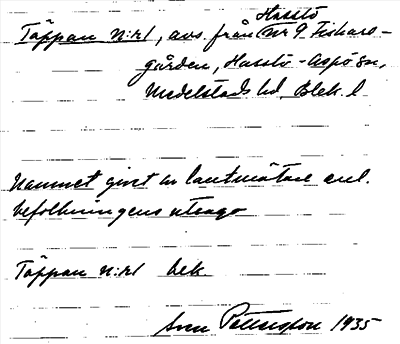 Hasslö
Täppan N:r 1, avs. från Nr 9 Fiskare-
gården, Hasslö-Aspö sn,
Medelstads hd. Blek. l
Namnet givet av lantmätare enl.
befolkningens utsago
Täppan N:r 1 bek
Sven Pettersson 1935